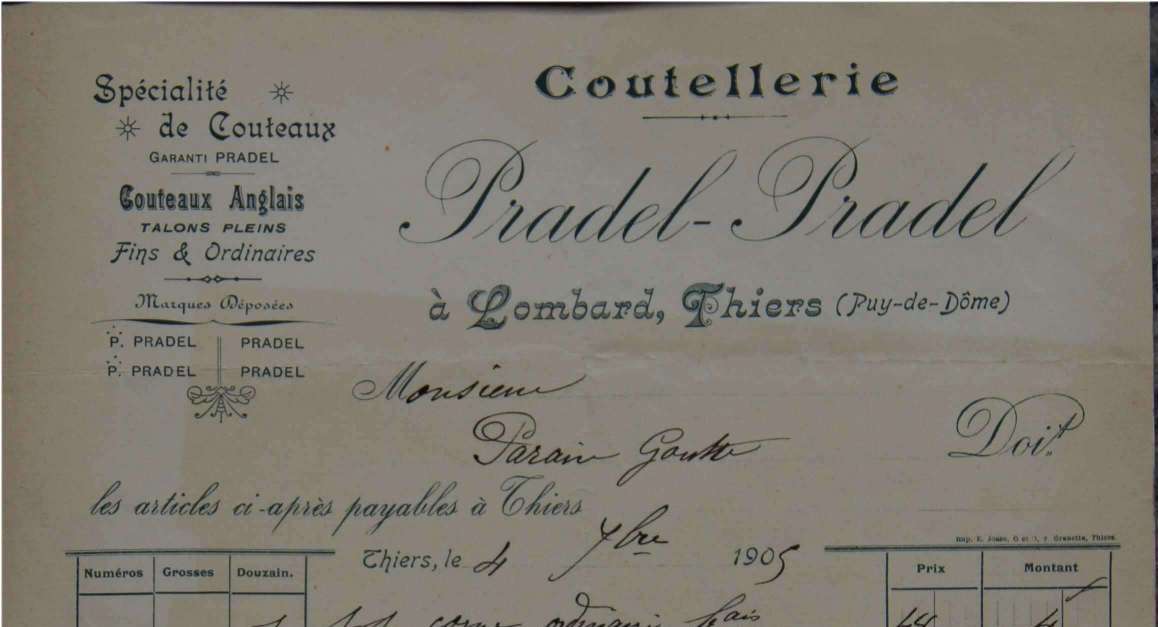 Spécialité
de Couteaux
GARANTI PRADEL
Couteaux Anglais
TALONS PLEINS
Fins & Ordinaires
Marques Déposées
P. PRADEL PRADEL
P. PRADEL PRADEL
Coutellerie
Pradel-Pradel
à Lombard, Thiers (Puy-de-Dôme)
Monsieur
Parain Goutte
Doit
les articles ci-après payables à Thiers
Thiers, le 4 7bre 1905
Numéros Grosses Douzain. Prix Montant
corne ordinaire